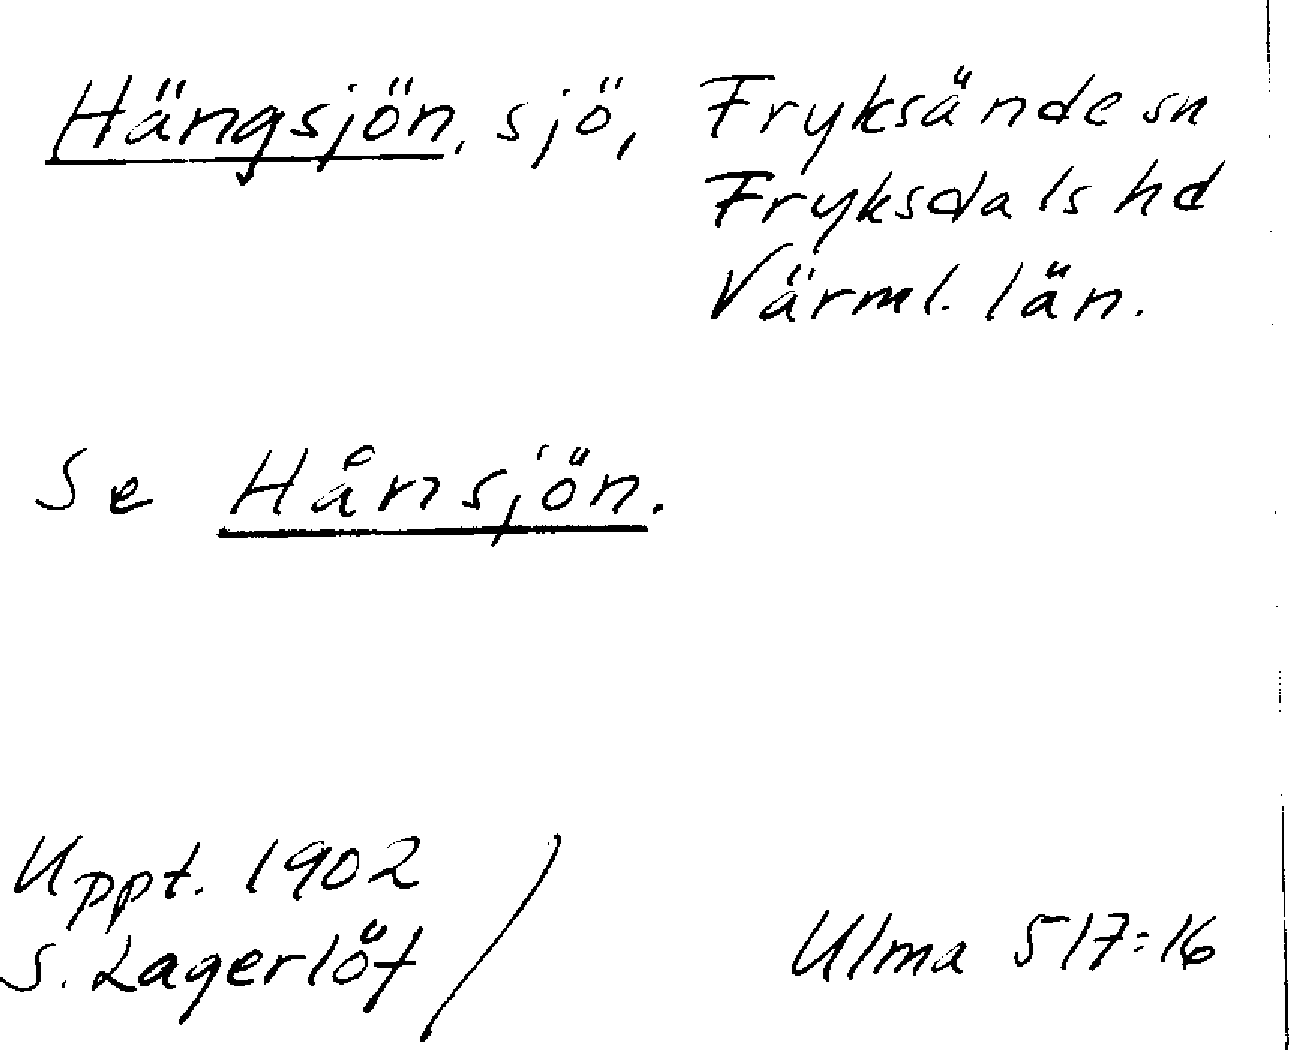 Hängsjön, sjö, Fryksände sn
Fryksdals hd
Värml. län.
Se Hånsjön.
Uppt. 1902
S. Lagerlöf
Ulma 517:16